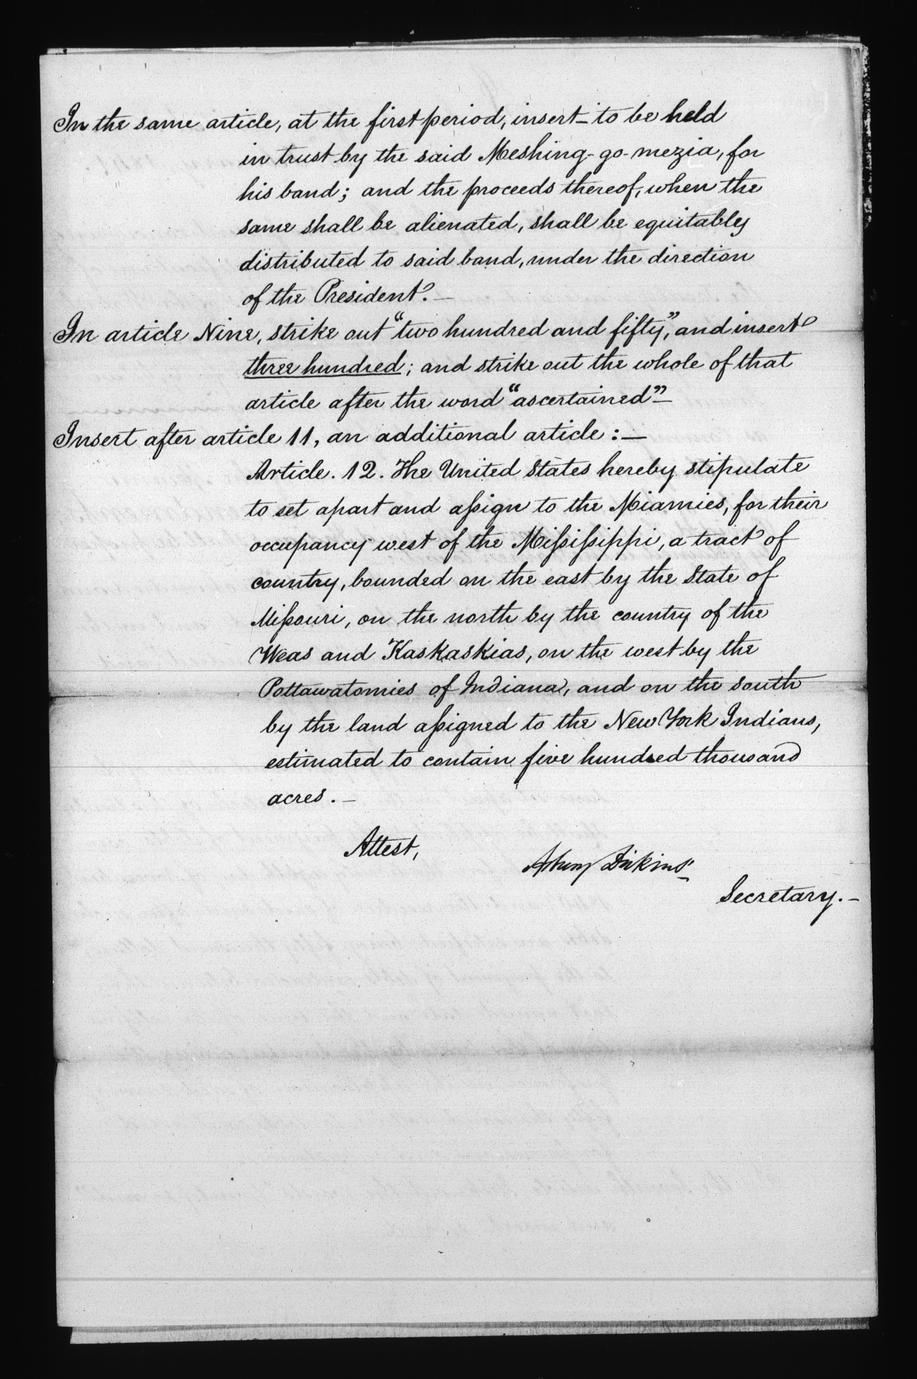 In the same article, at the first period, insert – to be held
in trust by the said Meshing-go-mezia, for
his band; and the proceeds thereof, when the
same shall be alienated, shall be equitably
distributed to said band, under the direction
of the President. —
In article Nine, strike out "two hundred and fifty", and insert
three hundred; and strike out the whole of that
article after the word "ascertained" —
Insert after article 11, an additional article: —
Article. 12. The United States hereby stipulate
to set apart and assign to the Miamies, for their
occupancy west of the Mississippi, a tract of
country, bounded on the east by the State of
Missouri, on the north by the country of the
Weas and Kaskaskias, on the west by the
Pottawatomies of Indiana, and on the south
by the land assigned to the New York Indians,
estimated to contain five hundred thousand
acres. —
Attest,
Asbury Dickins
Secretary. —